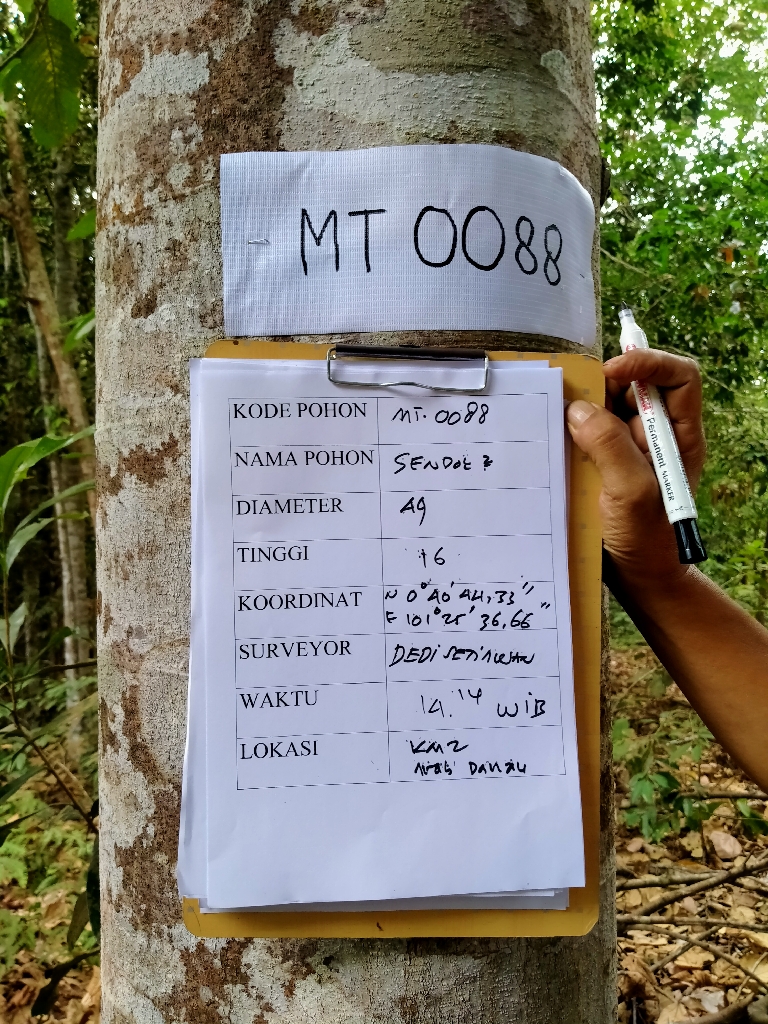 MT 0088
KODE POHON MT. 0088
NAMA POHON SENDOK2
DIAMETER 49
TINGGI 16
KOORDINAT N 0° 40' 44,33"
E 101° 25' 36,66"
SURVEYOR DEDI SETIAWAN
WAKTU 14.14 WIB
LOKASI KM2
DANAU
Permanent MARKER